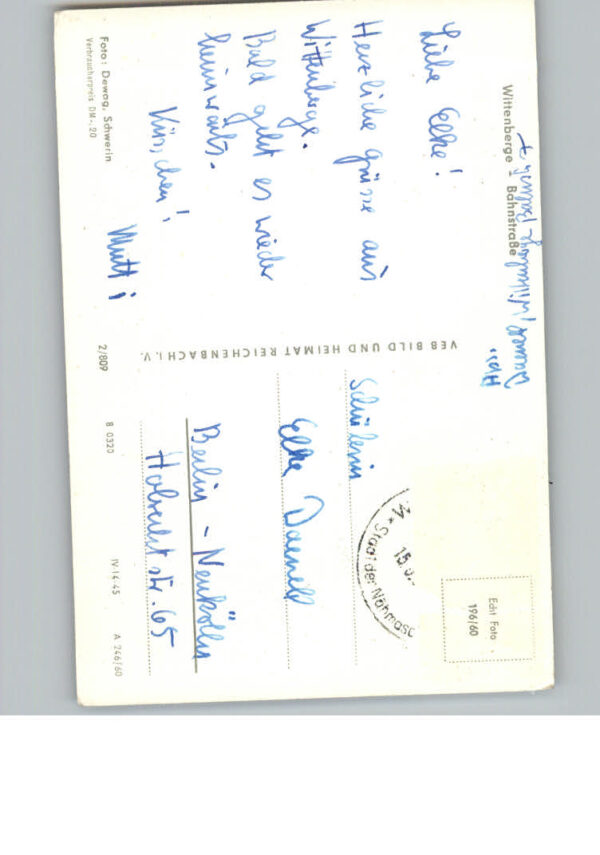 Wittenberge - Bahnstraße
Liebe Elke!
Herzliche Grüsse aus
Wittenberge.
Bald geht es wieder
heimwärts.
Küsschen!
Mutti
Foto: Dewag, Schwerin
Verbraucherpreis DM -,20
VEB BILD UND HEIMAT REICHENBACH I. V.
2/809
Echt Foto
196/60
15.
Stadt der Nähmasc
Schülerin
Elke
Berlin - Neukölln
str. 65
B 0320
IV-14-45
A 246/60